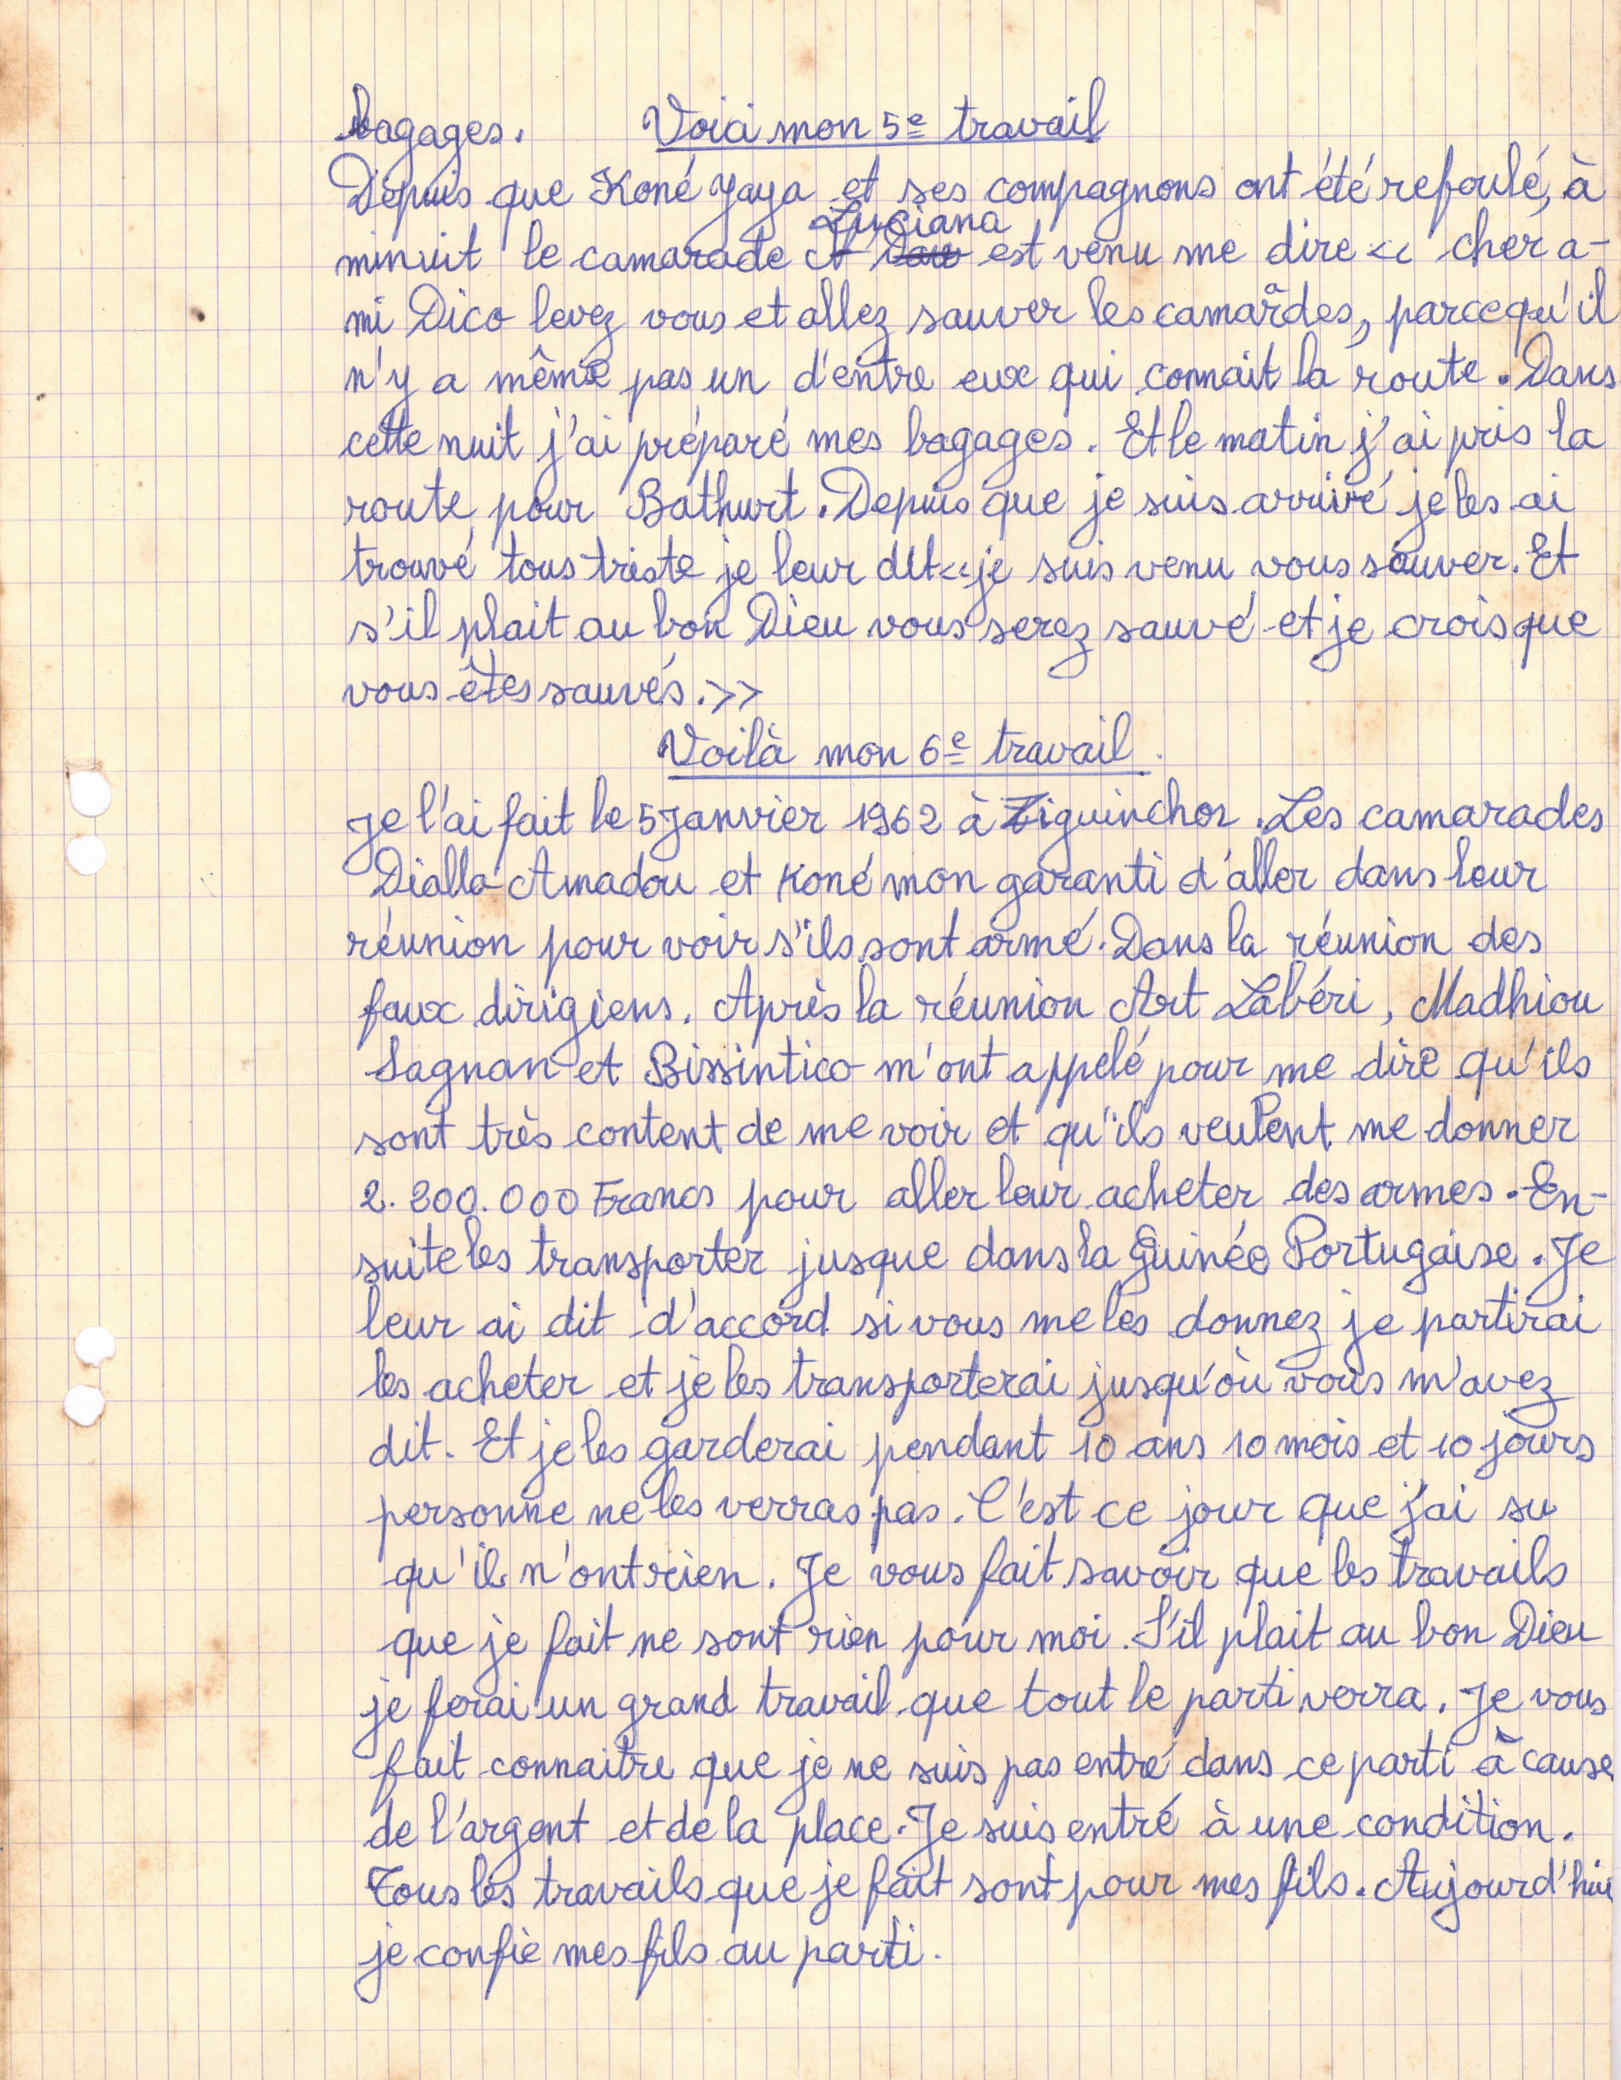 bagages. Voici mon 5e travail
Depuis que Koné Yaya et ses compagnons ont été refoulé, à
Luciana
minuit le camarade N'Daw est venu me dire << cher a-
mi Dico levez vous et allez sauver les camardes, parcequ'il
n'y a même pas un d'entre eux qui connait la route. Dans
cette nuit j'ai préparé mes bagages. Et le matin j'ai pris la
route pour Bathurt. Depuis que je suis arrivé je les ai
trouvé tous triste je leur dit << je suis venu vous sauver. Et
s'il plait au bon Dieu vous serez sauvé et je crois que
vous êtes sauvés. >>
Voilà mon 6e travail.
Je l'ai fait le 5 Janvier 1962 à Ziguinchor. Les camarades
Diallo Amadou et Koné mon garanti d'aller dans leur
réunion pour voir s'ils sont armé. Dans la réunion des
faux dirigiens. Après la réunion Art Labéri, Madhiou
Sagnan et Bissintico m'ont appelé pour me dire qu'ils
sont très content de me voir et qu'ils veulent me donner
2.200.000 Francs pour aller leur acheter des armes. En-
suite les transporter jusque dans la Guinée Portugaise. Je
leur ai dit d'accord si vous me les donnez je partirai
les acheter et je les transporterai jusqu'où vous m'avez
dit. Et je les garderai pendant 10 ans 10 mois et 10 jours
personne ne les verras pas. C'est ce jour que j'ai su
qu'ils n'ont rien. Je vous fait savoir que les travails
que je fait ne sont rien pour moi. S'il plait au bon Dieu
je ferai un grand travail que tout le parti verra. Je vous
fait connaitre que je ne suis pas entré dans ce parti à cause
de l'argent et de la place. Je suis entré à une condition.
Tous les travails que je fait sont pour mes fils. Aujourd'hui
je confie mes fils au parti.